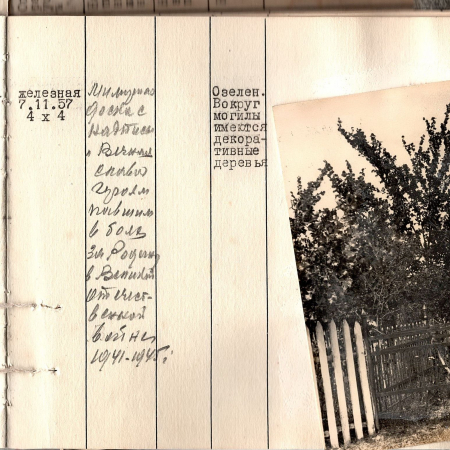 железная
7.11.57
4 х 4
Мемориал
доска с
надписью
„ Вечная
слава
героям
павшим
в боях
за Родину
в Великой
Отечест-
венной
войне
1941-1945"
Озелен.
Вокруг
могилы
имеются
декора-
тивные
деревья